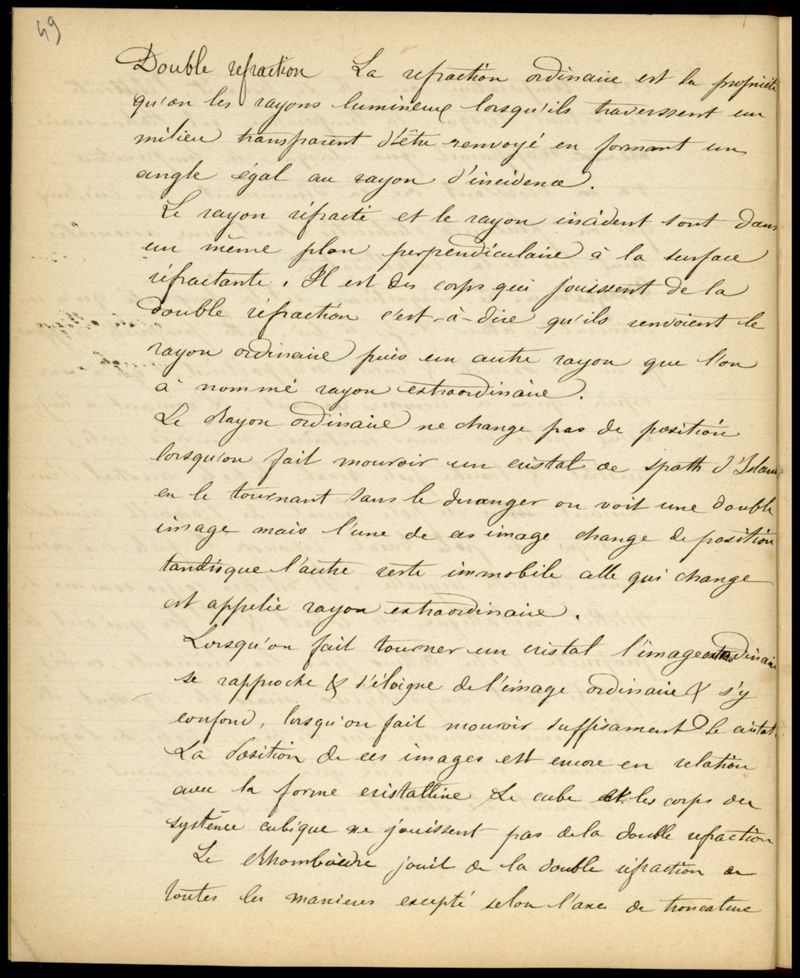 49
Double refraction La refraction ordinaire est la proprieté
qu'on les rayons lumineux lorsqu'ils traverssent un
milieu transparent d'être renvoyé en formant un
angle égal au rayon d'incidence.
Le rayon réfracté et le rayon incident sont dans
un même plan perpendiculaire à la surface
réfractante. Il est des corps qui jouissent de la
double réfraction c'est-à-dire qu'ils renvoient le
rayon ordinaire puis un autre rayon que l'on
à nommé rayon extraordinaire.
Le Rayon ordinaire ne change pas de position
lorsqu'on fait mouvoir un cristal de spath d'Islande
en le tournant sans le deranger on voit une double
image mais l'une de ces image change de position
tandisque l'autre reste immobile celle qui change
est appelée rayon extraordinaire.
Lorsqu'on fait tourner un cristal l'image extraordinaire
se rapproche & s'éloigne de l'image ordinaire & s'y
confond, lorsqu'on fait mouvoir suffisament le cristal.
La Position de ces images est encore en relation
avec la forme cristalline Le cube et les corps du
système cubique ne jouissent pas de la double refraction
Le Rhomboèdre jouit de la double réfraction de
toutes les manieres excepté selon l'axe de troncature